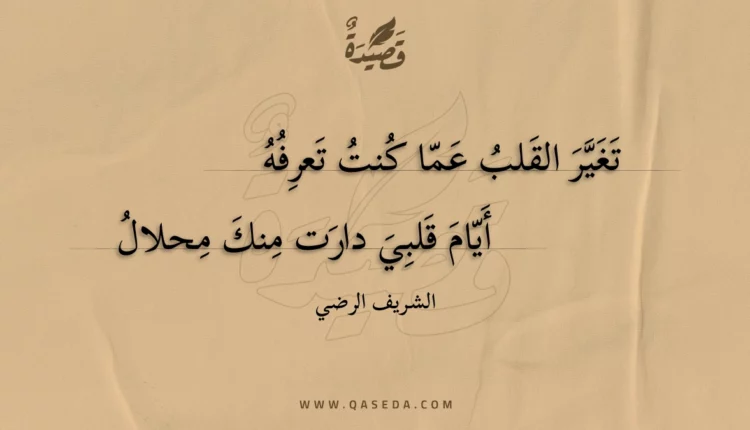 قَصِيْدَةٌ
تَغَيَّرَ القَلبُ عَمّا كُنتُ تَعرِفُهُ
أَيّامَ قَلبِيَ دارَت مِنكَ مِحلالُ
الشريف الرضي
WWW.QASEDA.COM